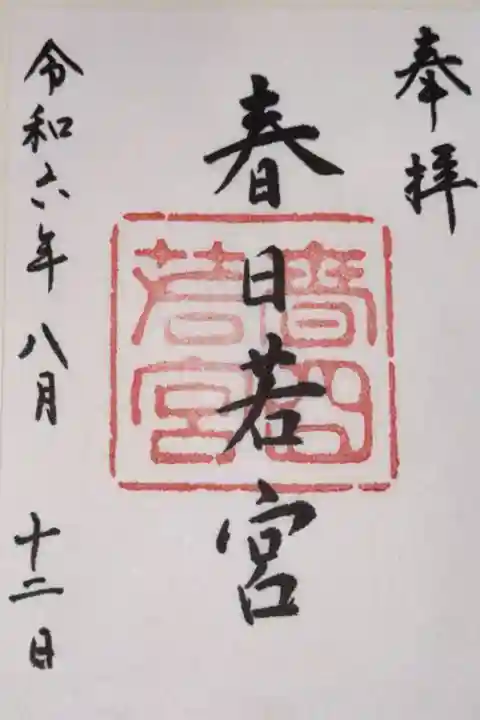 奉拝
春日若宮
春日
若宮
令和六年八月十二日